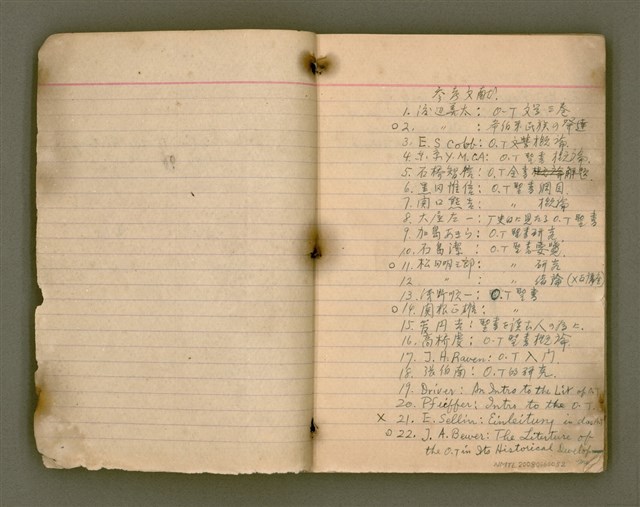 参考文献
1. 渡辺善太: O.T 文学 三巻
○2. 〃 : 希伯来民族の発達
3. E.S Cobb: O.T 文学概論
4. 東京Y.M.CA: O.T 聖書概論
5. 石橋智信: O.T 全書解題
6. 黒田惟信: O.T 聖書綱目
7. 関口熊吉: 〃 概論
8. O.T 聖書
9. 加島あきら: O.T 聖書研究
10. 石島潔: O.T 聖書要覧
○11. 松田明三郎: 〃 研究
12 〃 : 〃 緒論
13. 浅野順一: O.T 聖書
○14. 関根正雄: 〃
15. 聖書を読む人の為に
16. 高橋虔: O.T 聖書概論
17. J.H.Raven: O.T 入门
18. 張伯南: O.T 的研究
19. Driver: An Intro to the Lit of O.T
20. Pfieffer: Intro to the O.T.
X 21. E.Sellin: Einleitung in das
○22. J.A.Bewer: The Literture of
the O.T in Its Historical Develop-